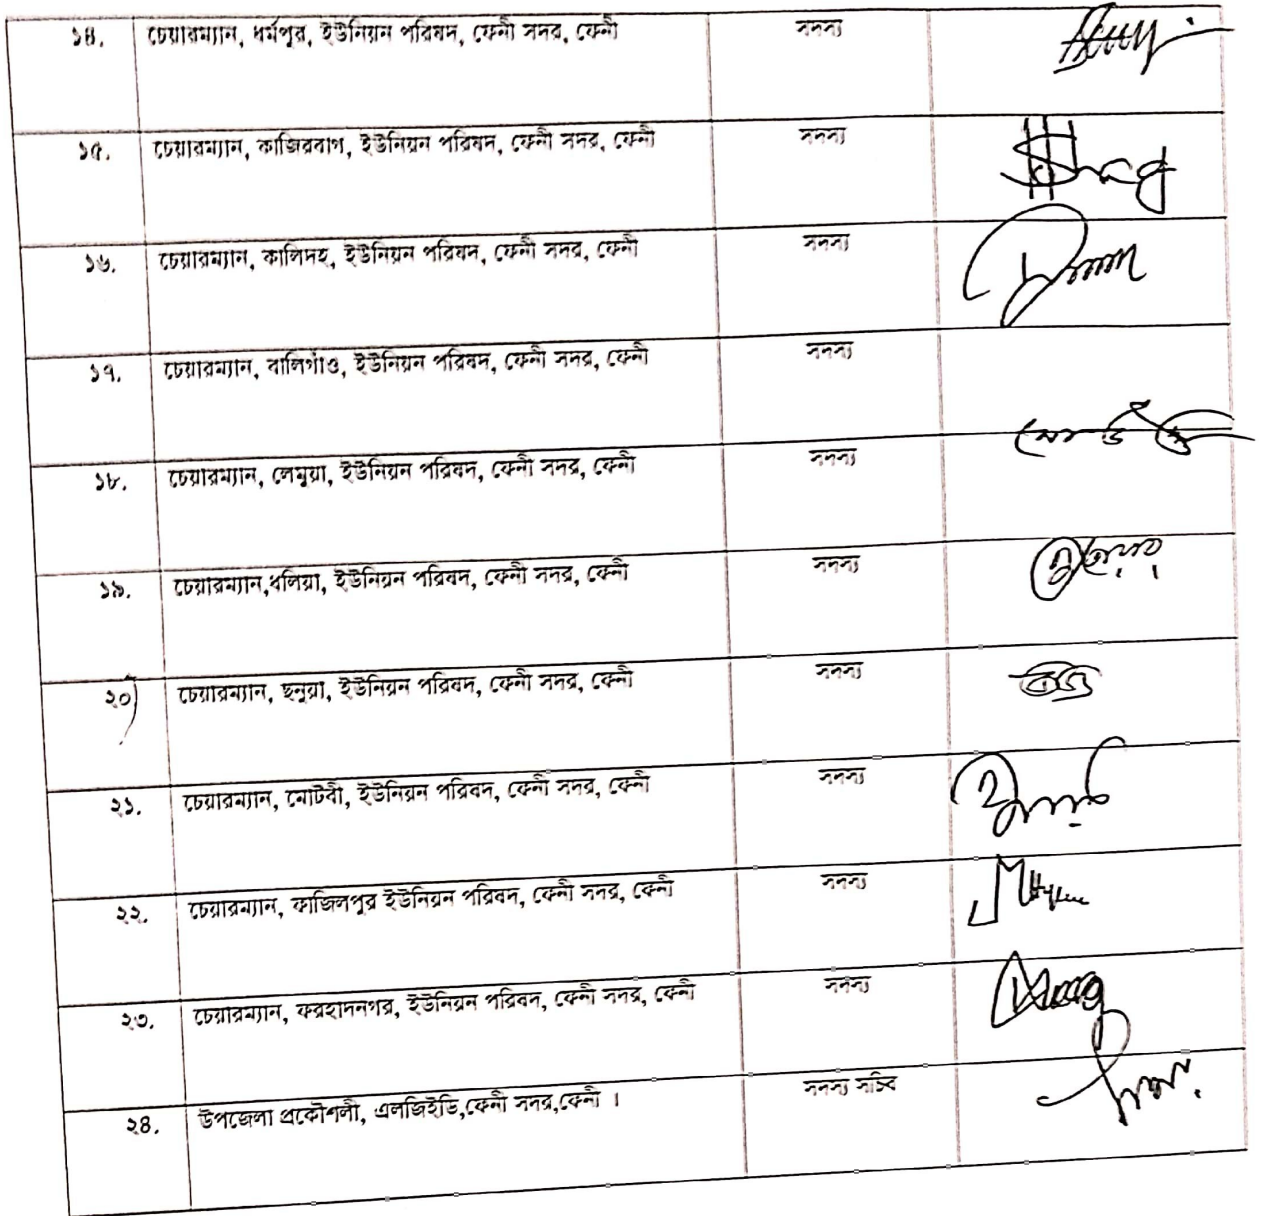 ১৪. চেয়ারম্যান, ধর্মপুর, ইউনিয়ন পরিষদ, ফেনী সদর, ফেনী সদস্য
১৫. চেয়ারম্যান, কাজিরবাগ, ইউনিয়ন পরিষদ, ফেনী সদর, ফেনী সদস্য
১৬. চেয়ারম্যান, কালিদহ, ইউনিয়ন পরিষদ, ফেনী সদর, ফেনী সদস্য
১৭. চেয়ারম্যান, বালিগাঁও, ইউনিয়ন পরিষদ, ফেনী সদর, ফেনী সদস্য
১৮. চেয়ারম্যান, লেমুয়া, ইউনিয়ন পরিষদ, ফেনী সদর, ফেনী সদস্য
১৯. চেয়ারম্যান,ধলিয়া, ইউনিয়ন পরিষদ, ফেনী সদর, ফেনী সদস্য
২০ চেয়ারম্যান, ছনুয়া, ইউনিয়ন পরিষদ, ফেনী সদর, ফেনী সদস্য
২১. চেয়ারম্যান, মোটবী, ইউনিয়ন পরিষদ, ফেনী সদর, ফেনী সদস্য
২২. চেয়ারম্যান, ফাজিলপুর ইউনিয়ন পরিষদ, ফেনী সদর, ফেনী সদস্য
২৩. চেয়ারম্যান, ফরহাদনগর, ইউনিয়ন পরিষদ, ফেনী সদর, ফেনী সদস্য
২৪. উপজেলা প্রকৌশলী, এলজিইডি,ফেনী সদর,ফেনী । সদস্য সচিব